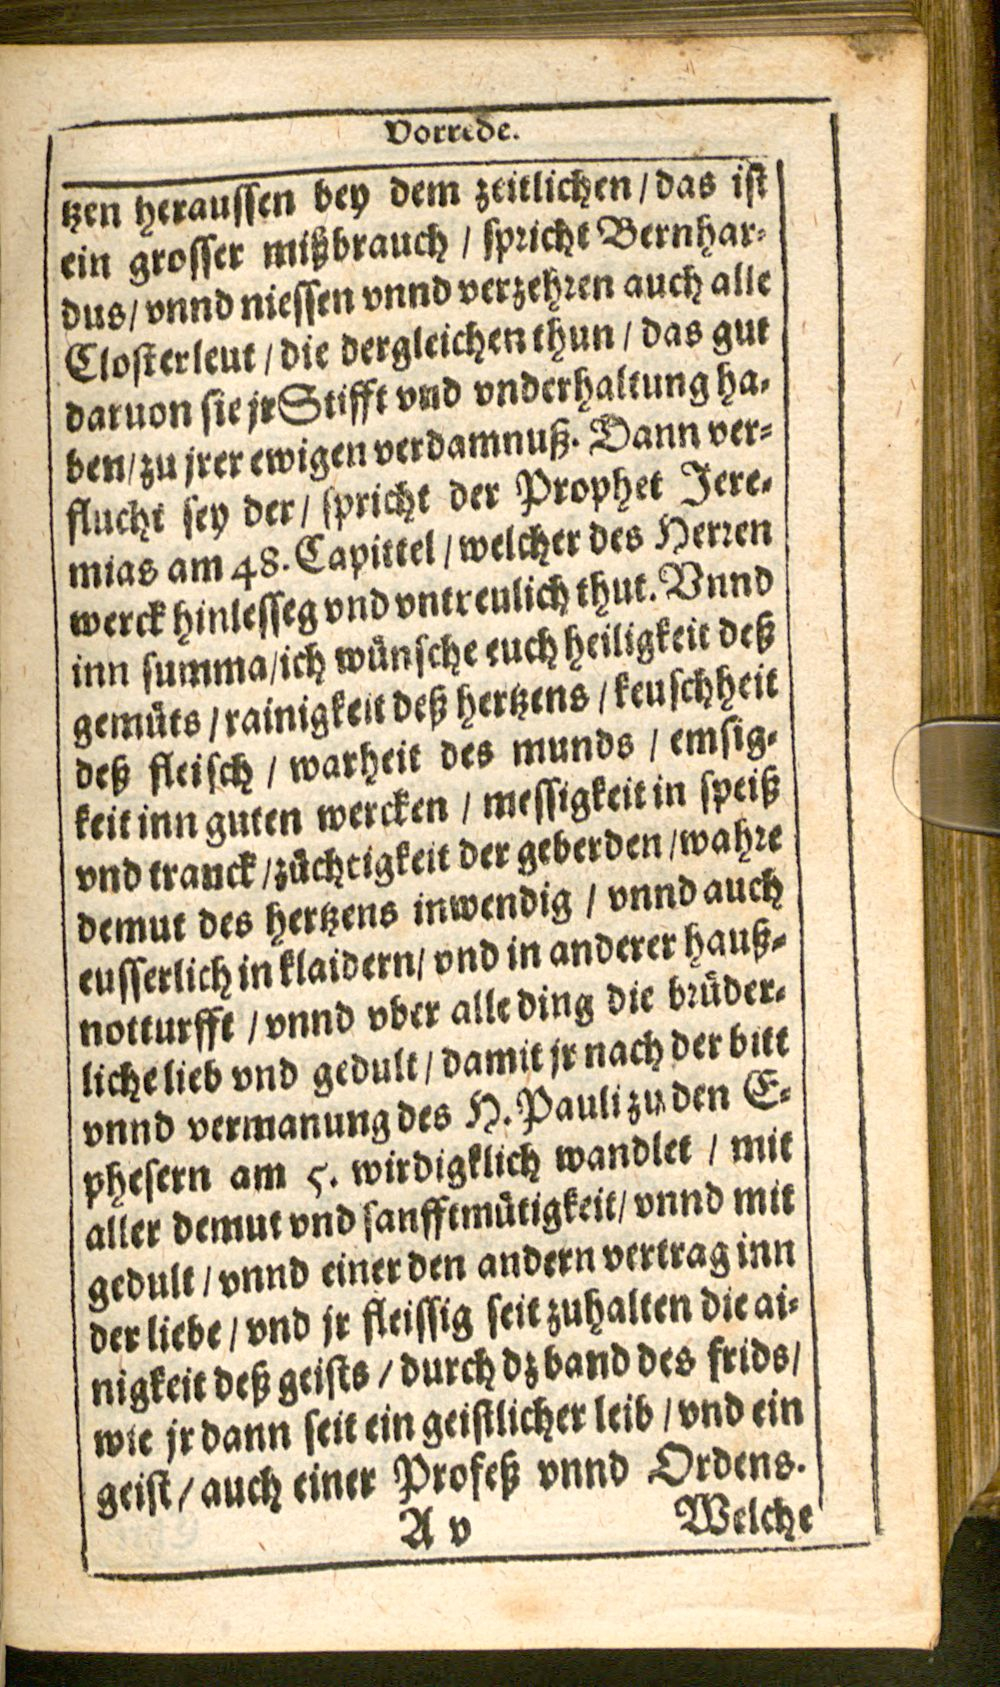 Vorrede.
tzen heraussen bey dem zeitlichen / das ist
ein grosser mißbrauch / spricht Bernhar-
dus / vnnd niessen vnnd verzehren auch alle
Closterleut / die dergleichen thun / das gut
daruon sie jr Stifft vnd vnderhaltung ha-
ben / zu jrer ewigen verdamnuß. Dann ver-
flucht sey der / spricht der Prophet Jere-
mias am 48. Capittel / welcher des Herren
werck hinlesseg vnd vntreulich thut. Vnnd
inn summa / ich wünsche euch heiligkeit deß
gemüts / rainigkeit deß hertzens / keuschheit
deß fleisch / warheit des munds / emsig-
keit inn guten wercken / messigkeit in speiß
vnd tranck / züchtigkeit der geberden / wahre
demut des hertzens inwendig / vnnd auch
eusserlich in klaidern / vnd in anderer hauß-
notturfft / vnnd vber alle ding die brüder-
liche lieb vnd gedult / damit jr nach der bitt
vnnd vermanung des H. Pauli zu den E-
phesern am 5. wirdigklich wandlet / mit
aller demut vnd sanfftmütigkeit / vnnd mit
gedult / vnnd einer den andern vertrag inn
der liebe / vnd jr fleissig seit zuhalten die ai-
nigkeit deß geists / durch dz band des frids /
wie jr dann seit ein geistlicher leib / vnd ein
geist / auch einer Profeß vnnd Ordens.
A v Welche